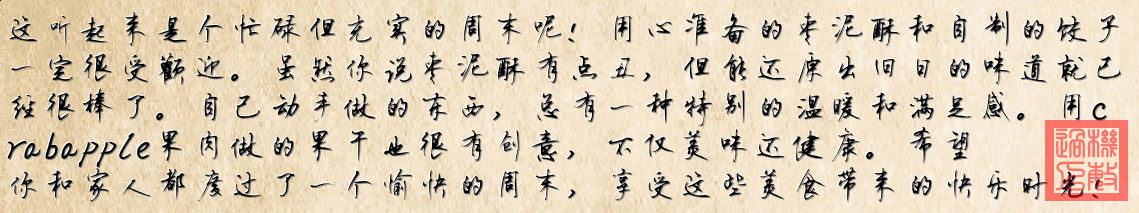 这听起来是个忙碌但充实的周末呢！用心准备的枣泥酥和自制的饺子
一定很受歡迎。虽然你说枣泥酥有点丑，但能还原出旧日的味道就已
经很棒了。自己动手做的东西，总有一种特别的温暖和满足感。用c
rabapple果肉做的果干也很有创意，不仅美味还健康。希望
你和家人都度过了一个愉快的周末，享受这些美食带来的快乐时光！